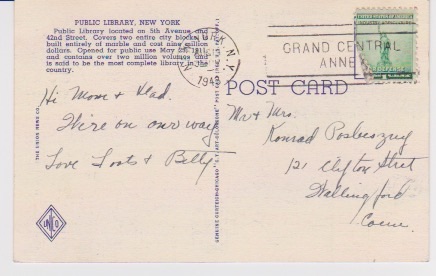 PUBLIC LIBRARY, NEW YORK
Public Library located on 5th Avenue and
42nd Street. Covers two entire city blocks,
built entirely of marble and cost nine million
dollars. Opened for public use May 23, 1911,
and contains over two million volumes and
is said to be the most complete library in the
country.
N.Y.
1943
GRAND CENTRAL
ANNEX
POST CARD
Hi Mom & Dad.
We're on our way
Love Toots & Billy
Mr & Mrs.
Konrad
121 Clifton Street
Wallingford
Conn.
THE UNION NEWS CO.